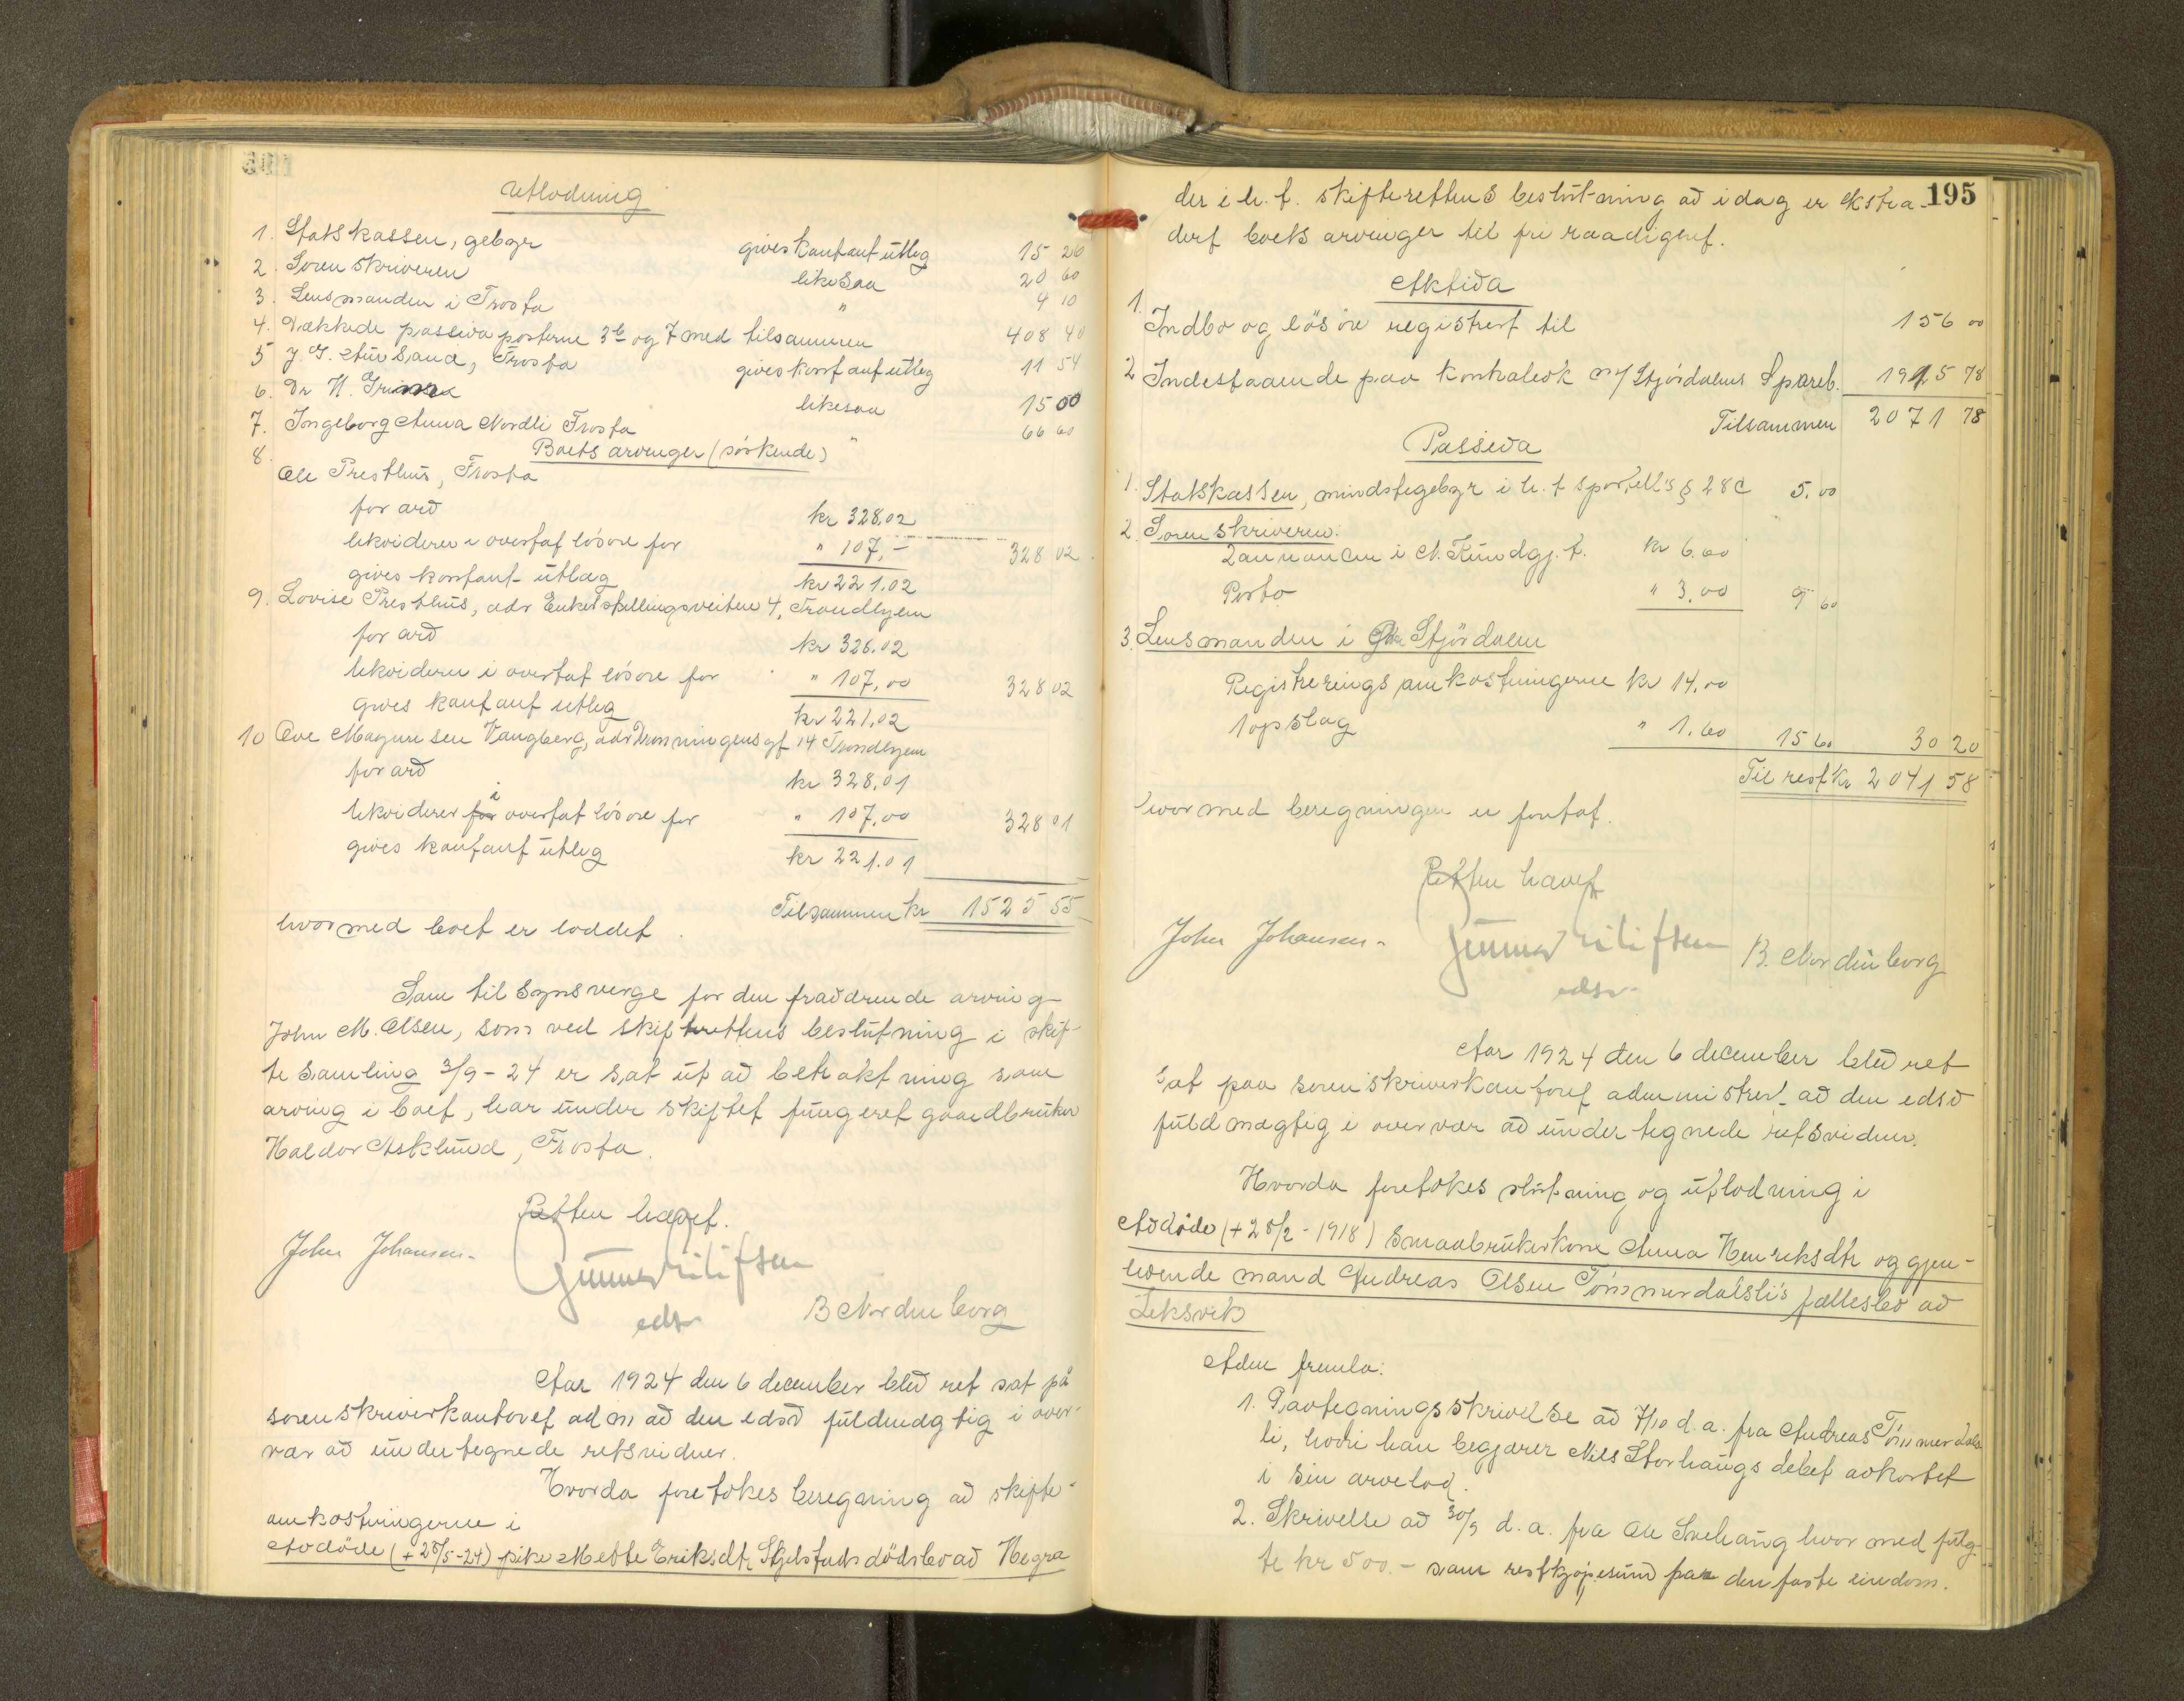 Utlodning
1. Statskassen, gebyr gives kontant utlæg 15 20
2. Sorenskriveren likesaa 20 60
3. Lensmanden i Frosta " 4 10
4. Dækkede passiva posterne 3b og 7 med tilsammen 408 40
5 J. G. Aursand, Frosta gives kontant utlæg 11 54
6. Dr H. likesaa 15 00
7. Ingeborg Anna Nordli Frosta " 66 60
8. Boets arvinger (söskende)
Ole Presthus, Frosta
for arv kr 328.02
likviderer i overtat lösöre for " 107,- 328 02
gives kontant utlæg kr 221.02
9. Lovise Presthus, adr Enkeltskillingsveiten 4, Trondhjem
for arv kr 328.02
likviderer i overtat lösöre for " 107,00 328 02
gives kontant utlæg kr 221.02
10 Ove Magnussen Vangberg, adr Dronningensgt 14 Trondhjem
for arv kr 328,01
likviderer for i overtat lösöre for " 107.00 328 01
gives kontant utlæg kr 221.01
Tilsammen kr 1525 55
hvormed boet er loddet.
Som tilsynsverge for den fraværende arving
John M. Olsen, som ved skifterettens beslutning i skif-
tesamling 3/9-24 er sat ut av betraktning som
arving i boet, har under skiftet fungeret gaardbruker
Haldor Asklund, Frosta.
Retten hævet.
John Johansen. Gunnar Eilifsen B Nordenborg
edsv
Aar 1924 den 6 december blev ret sat på
sorenskriverkontoret adm av den edsv fuldmægtig i over-
vær av undertegnede retsvidner.
Hvorda foretokes beregning av skifte-
omkostningerne i
Avdöde (+ 28/5-24) pike Mette Eriksdtr Stjelstads dödsbo av Hegra
195
der i h. t. skifterettens beslutning av idag er ekstra-
dert boets arvinger til fri raadighet.
Aktiva
1. Indbo og lösöre registrert til 156 00
2 Indestaaende paa kontrabok m/ Stjördalens Spareb. 1915 78
Tilsammen 2071 78
Passiva
1. Statskassen, mindstegebyr i h. t sportell's § 28 c 5.00
2. Sorenskriveren:
2 annoncer i N. Kundgj. t. kr 6.60
Porto " 3.00 9 60
3. Lensmanden i Stjördalen
Registreringsomkostningerne kr 14.00
1 opslag " 1.60 15 60 30 20
Til rest kr 2041 58
hvormed beregningen er foretat.
Retten hævet
John Johansen. Gunnar Eilifsen B. Nordenborg
edsv.
Aar 1924 den 6 december blev ret
sat paa sorenskriverkontoret administrert av den edsv
fuldmægtig i overvær av undertegnede retsvidner.
Hvorda foretokes slutning og utlodning i
Avdöde (+ 28/2-1918) smaabrukerkone Anna Henriksdtr og gjen-
levende mand Andreas Olsen Tömmerdalsli's fællesbo av
Leksvik
Adm fremla:
1. Paategningsskrivelse av 7/10 d. a. fra Andreas Tömmerdals
li, hvori han begjærer Nils Storhaugs debet avkortet
i sin arvelod.
2. Skrivelse av 30/9 d. a. fra Ole Snehaug hvormed fulg-
te kr 500.- som restkjöpesum paa den faste eiendom.